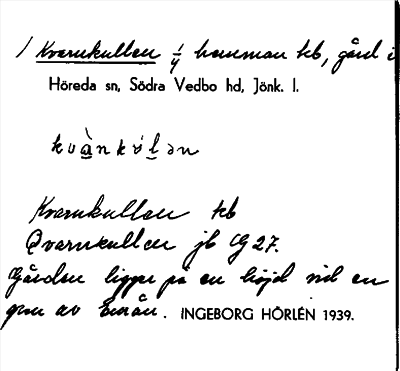 / Kvarnkullen 1/4 hemman kb, gård i
Höreda sn, Södra Vedbo hd, Jönk. l.
kvànkúlən
Kvarnkullen kb
Qvarnkullen jb CG 27.
Gården ligger på en höjd vid en
gren av Emån. INGEBORG HÖRLÉN 1939.